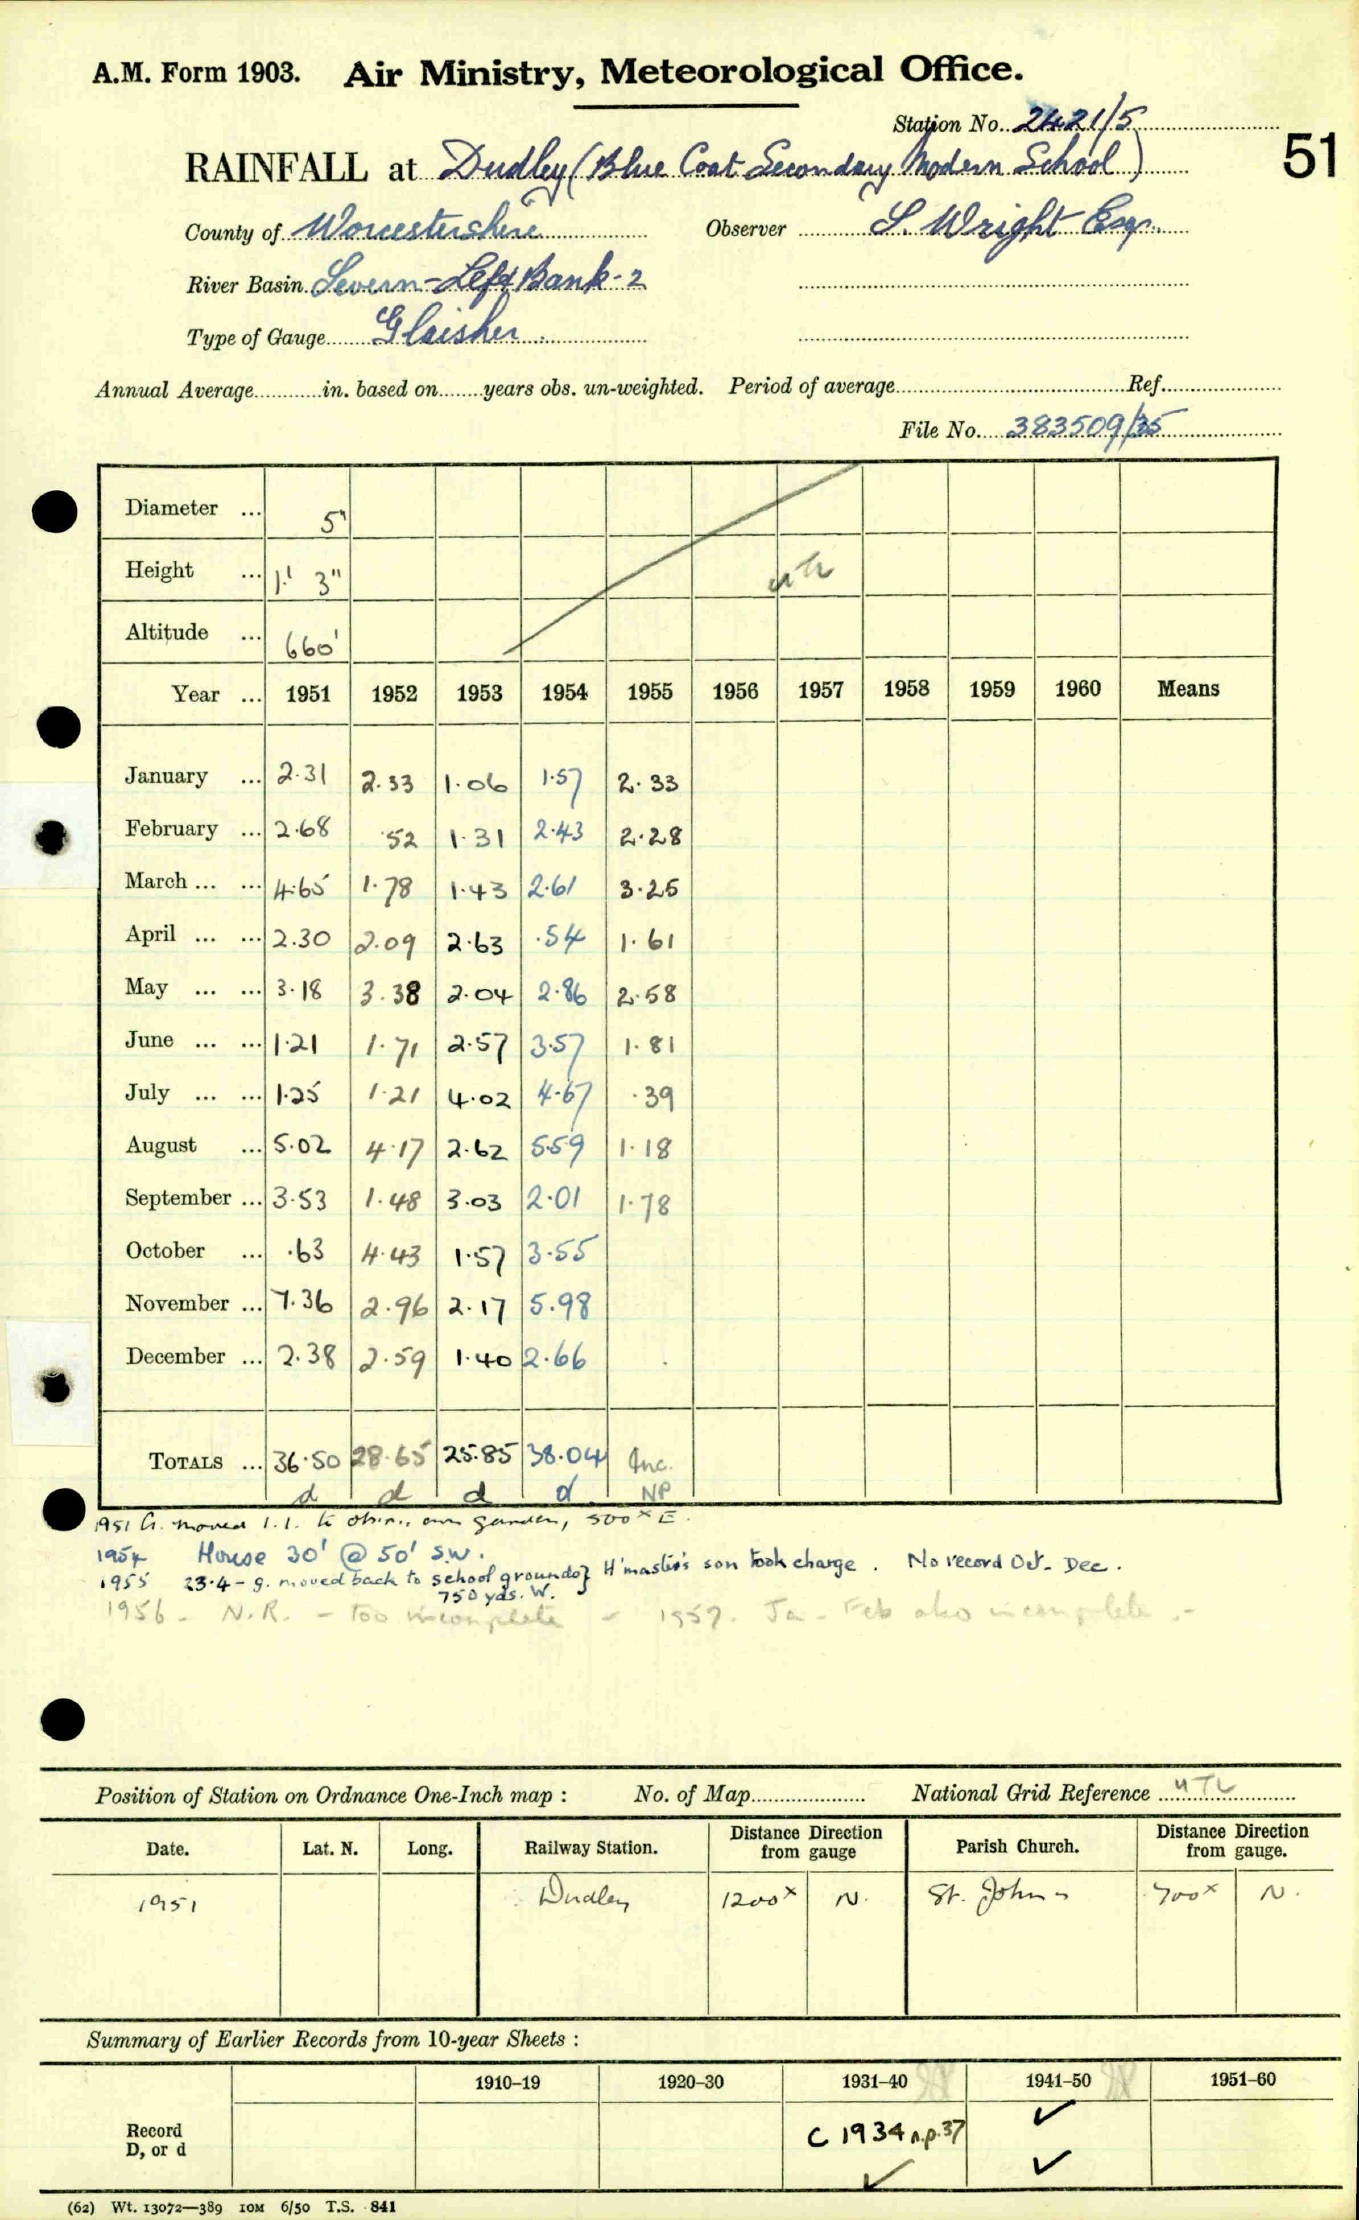 A.M. Form 1903. Air Ministry, Meteorological Office.
Station No. 2421/5
51
RAINFALL at Dudley (Blue Coat Secondary Modern School)
County of Worcestershire Observer S. Wright Esq.
River Basin Severn-Left Bank-2
Type of Gauge Glaisher
Annual Average............in. based on........years obs. un-weighted. Period of average............Ref............
File No. 383509/35
Diameter ... 5"
Height ... 1' 3"
Altitude ... 660'
Year ... 1951 1952 1953 1954 1955 1956 1957 1958 1959 1960 Means
January ... 2.31 2.33 1.06 1.57 2.33
February ... 2.68 .52 1.31 2.43 2.28
March ... ... 4.65 1.78 1.43 2.61 3.25
April ... ... 2.30 2.09 2.63 .54 1.61
May ... ... 3.18 3.38 2.04 2.86 2.58
June ... ... 1.21 1.71 2.57 3.57 1.81
July ... ... 1.25 1.21 4.02 4.67 .39
August ... 5.02 4.17 2.62 5.59 1.18
September ... 3.53 1.48 3.03 2.01 1.78
October ... .63 4.43 1.57 3.55
November ... 7.36 2.96 2.17 5.98
December ... 2.38 2.59 1.40 2.66
TOTALS ... 36.50 28.65 25.85 38.04 Inc.
d d d d NP
1951 G. moved 1.1. to obsr.. own garden, 500x E.
1954 House 30' @ 50' S.W.
1955 23.4 - g. moved back to school grounds} H'master's son took charge. No record Oct. Dec.
750 yds. W.
1956 - N.R. - too incomplete - 1957. Ja - Feb also incomplete -
Position of Station on Ordnance One-Inch map : No. of Map.................... National Grid Reference UTL
Date. Lat. N. Long. Railway Station. Distance from gauge Direction Parish Church. Distance from gauge. Direction
1951 Dudley 1200x N. St. Johns 700x N.
Summary of Earlier Records from 10-year Sheets :
1910–19 1920–30 1931–40 1941–50 1951–60
Record
D, or d C 1934 n.p. 37 ✓
✓ ✓
(62) Wt. 13072—389 10M 6/50 T.S. 841